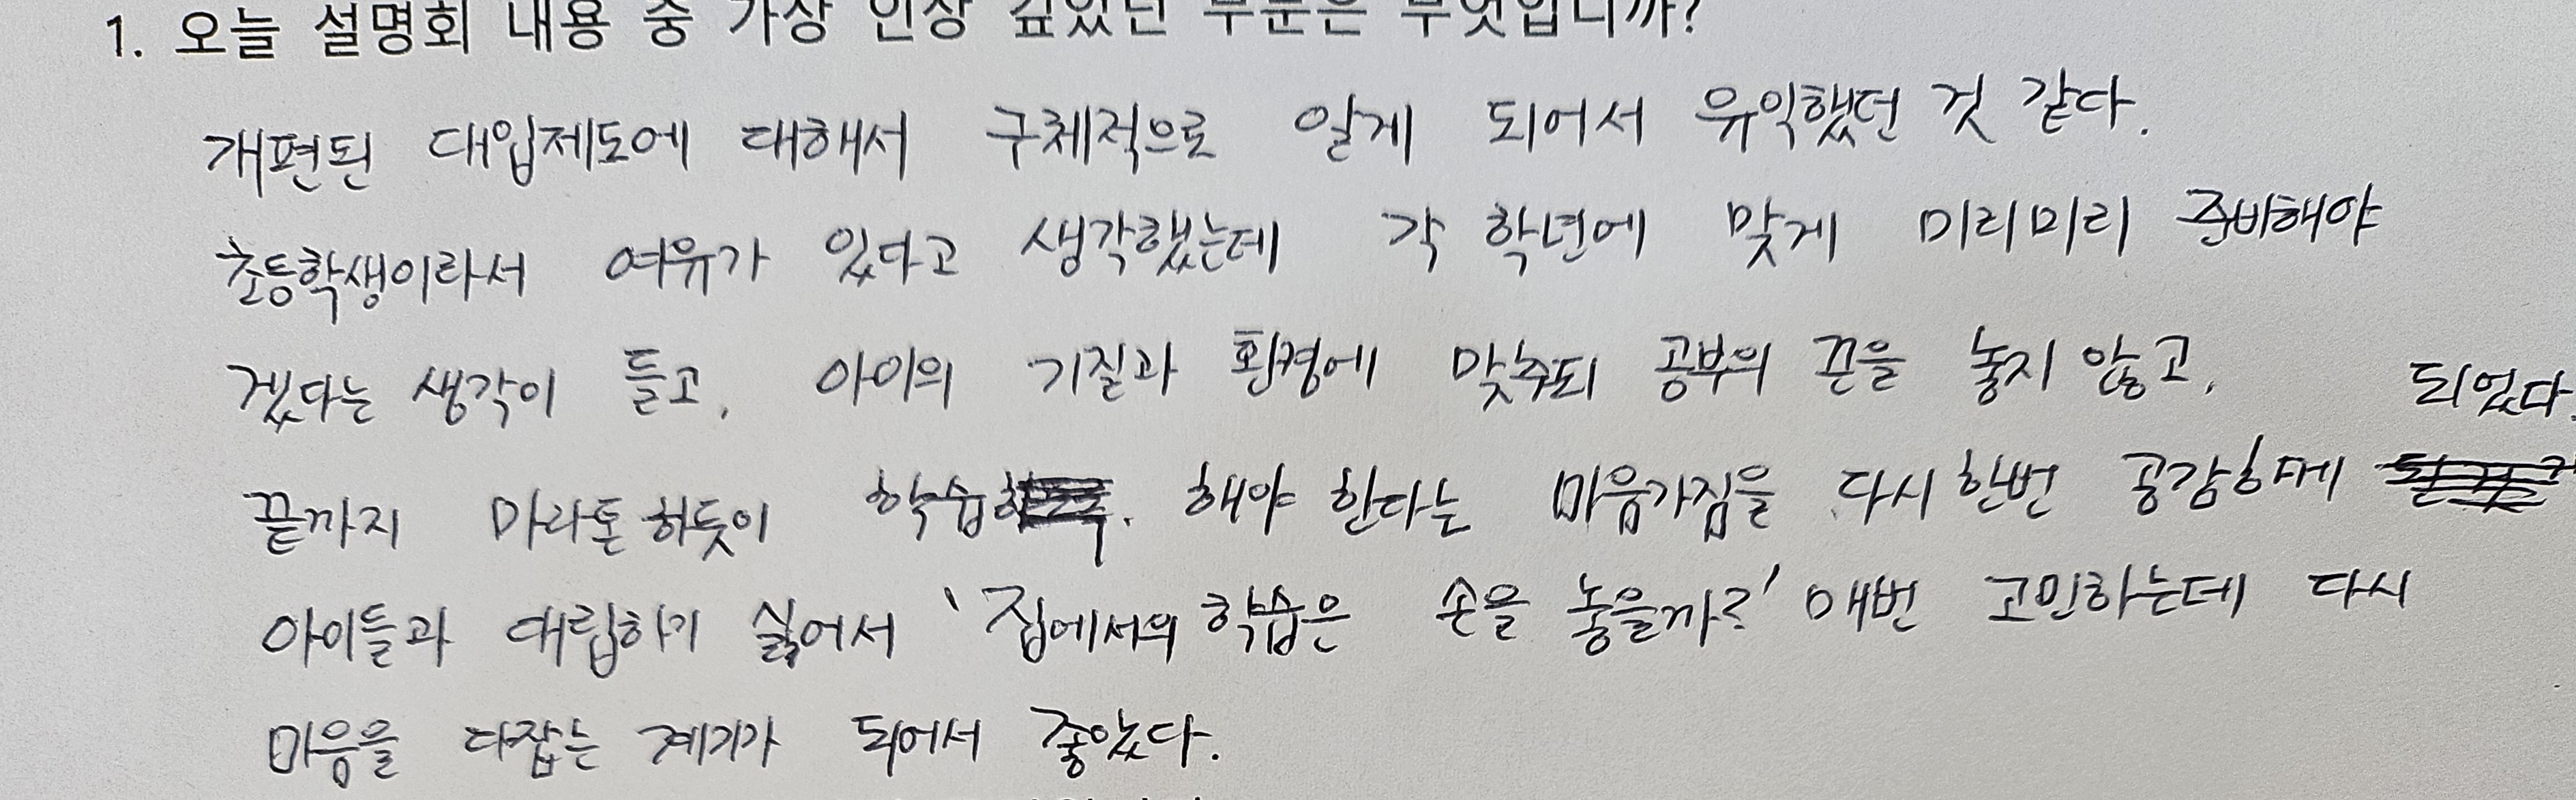 1. 오늘 설명회 내용 중 가장 인상 깊었던 부분은 무엇입니까?
개편된 대입제도에 대해서 구체적으로 알게 되어서 유익했던 것 같다.
초등학생이라서 여유가 있다고 생각했는데 각 학년에 맞게 미리미리 준비해야
겠다는 생각이 들고, 아이의 기질과 환경에 맞추되 공부의 끈을 놓지 않고,
되었다.
끝까지 마라톤 하듯이 학습 해야 한다는 마음가짐을 다시 한번 공감하게
아이들과 대립하기 싫어서 '집에서의 학습은 손을 놓을까?' 매번 고민하는데 다시
마음을 다잡는 계기가 되어서 좋았다.